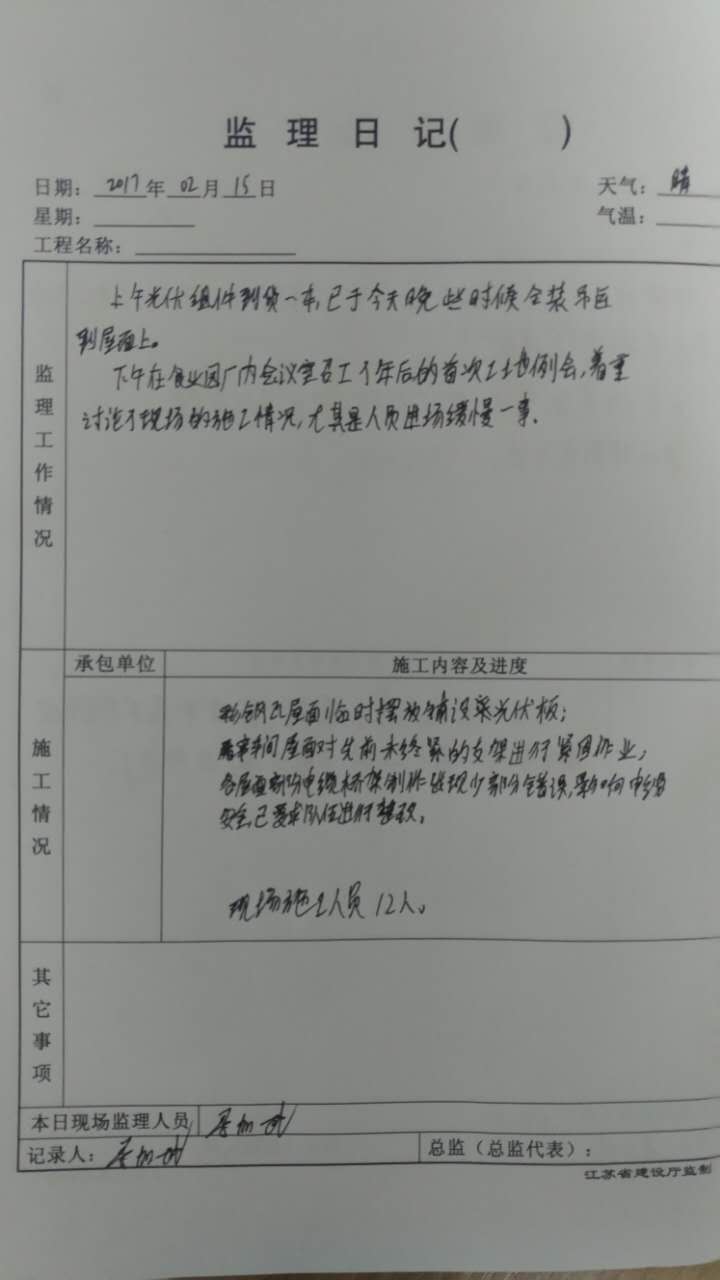 监 理 日 记( )
日期: 2017 年 02 月 15 日 天气: 晴
星期: 气温:
工程名称:
监理工作情况
上午光伏组件到货一车,已于今天晚些时候全装吊运
到屋面上。
下午在食业园厂内会议室召工了年后的首次工地例会,着重
讨论了现场的施工情况,尤其是人员进场缓慢一事.
承包单位 施工内容及进度
施工情况
彩钢瓦屋面临时摆放铺设梁光伏板;
车间屋面对先前未终紧的支架进行紧固作业;
各屋面部份电缆桥架制作发现少部分错误,影响
安全,已要求队伍进行整改。
现场施工人员 12人。
其它事项
本日现场监理人员
记录人: 总监(总监代表):
江苏省建设厅监制